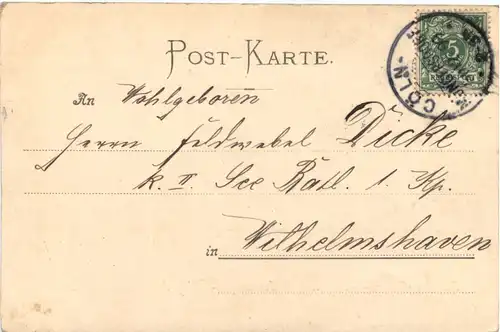 POST-KARTE.
An Wohlgeboren
Herrn Feldwebel Dicke
k. II. See Batl. 1. Kp.
in Wilhelmshaven
5
CÖLN